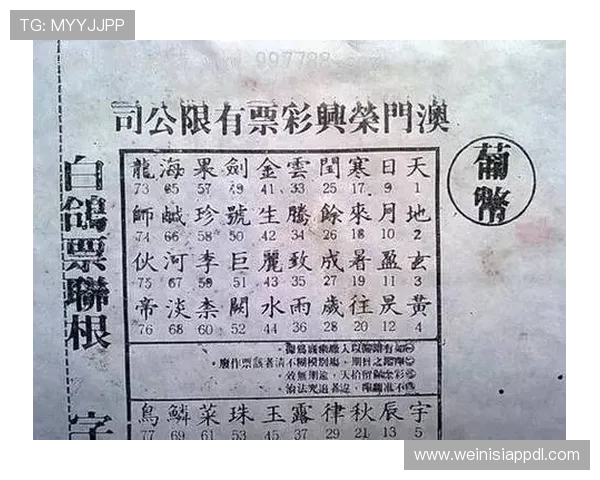 TG: MYYJJPP
997788.com
澳門榮興彩票有限公司
葡幣
天日寒閏雲金劍果海龍
1 9 17 25 33 41 49 57 65 73
地月來餘騰生號珍鹹師
2 10 18 26 34 42 50 58 66 74
玄盈暑成致麗巨李河伙
3 11 19 27 35 43 51 59 67 75
黃昃往歲雨水闕柰淡帝
4 12 20 28 36 44 52 60 68 76
模糊不清者該票作廢
逾期無效
違者追究法治
宇辰秋律露玉珠菜鱗鳥
5 13 21 29 37 45 53 61 69 77
白鴿票聯根
字
www.weinisiappdl.com